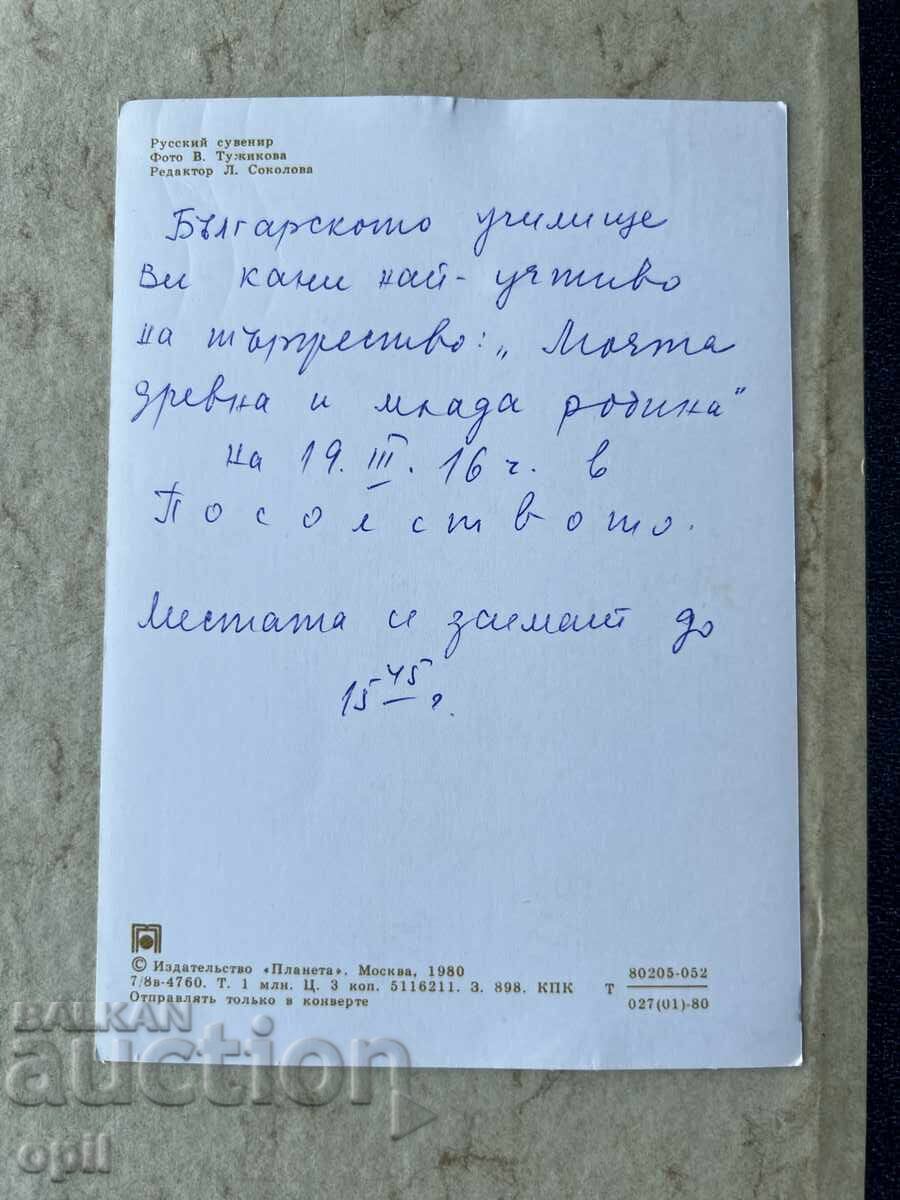 Русский сувенир
Фото В. Тужикова
Редактор Л. Соколова
Българското училище
Ви кани най-учтиво
на тържество: „Моята
древна и млада родина"
на 19. III. 16 ч. в
Посолството.
Местата се заемат до
15 45 ч.
© Издательство «Планета». Москва, 1980
7/8в-4760. Т. 1 млн. Ц. 3 коп. 5116211. З. 898. КПК
Отправлять только в конверте
Т 80205-052
027(01)-80
BALKAN
auction
opil